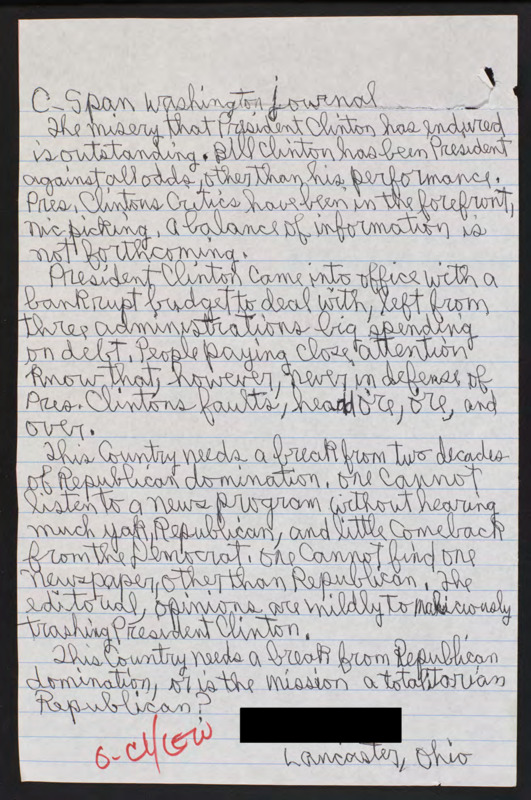 C-Span Washington Journal
The misery that President Clinton has endured
is outstanding. Bill Clinton has been President
against all odds, other than his performance.
Pres. Clintons Critics have been in the forefront,
nic picking, a balance of information is
not forthcoming.
President Clinton Came into office with a
bankrupt budget to deal with, left from
three administrations big spending
on debt. People paying close attention
know that, however, never in defense of
Pres. Clintons faults, heard ore, ore, and
over.
This Country needs a break from two decades
of Republican domination. One Cannot
listen to a news program without hearing
much yak, Republican, and little Comeback
from the Democrat. One Cannot find one
Newspaper, other than Republican. The
editorial, opinions are mildly to maliciously
trashing President Clinton.
This Country needs a break from Republican
domination, or is the mission a totalitarian
Republican?
Lancaster, Ohio